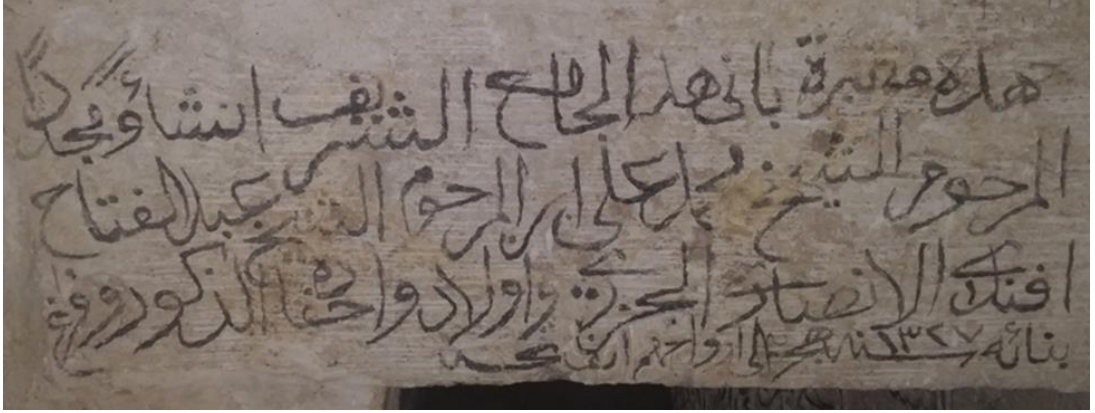 هذه مقبرة بانى هذا الجامع الشريف انشاؤ مجداً
المرحوم الشيخ محمد على ابن المرحوم الشيخ عبدالفتاح
افندى الانصارى الجزرى واولاده واحفاده الذكور ووقع
بنائه سنه ١٣٢٧ هجرى ارواحهم